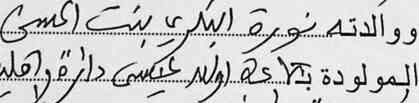 ووالدته نورة البكري بنت الحسن
المولودة ب اولاد عيسى دائرة واقليم